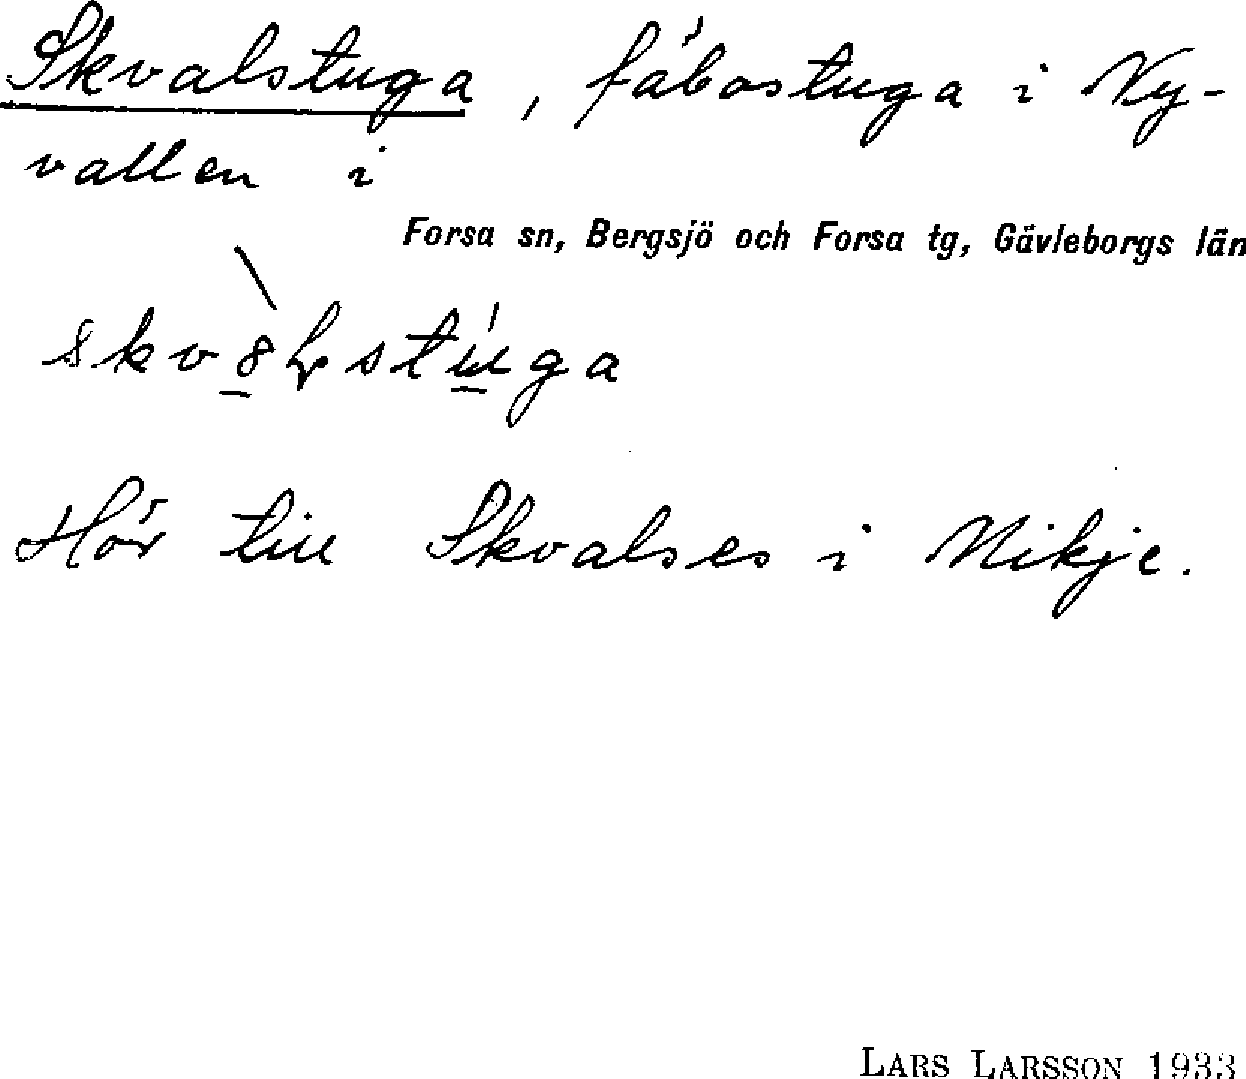 Skvalstuga, fäbostuga i Ny-
vallen i
Forsa sn, Bergsjö och Forsa tg, Gävleborgs län
Hör till Skvalses i Nikje.
LARS LARSSON 1933